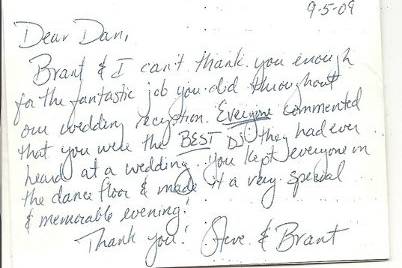 9-5-09
Dear Dan,
Brant & I can't thank you enough
for the fantastic job you did throughout
our wedding reception. Everyone commented
that you were the BEST DJ they had ever
heard at a wedding. You kept everyone on
the dance floor & made it a very special
& memorable evening!
Thank you! Steve & Brant